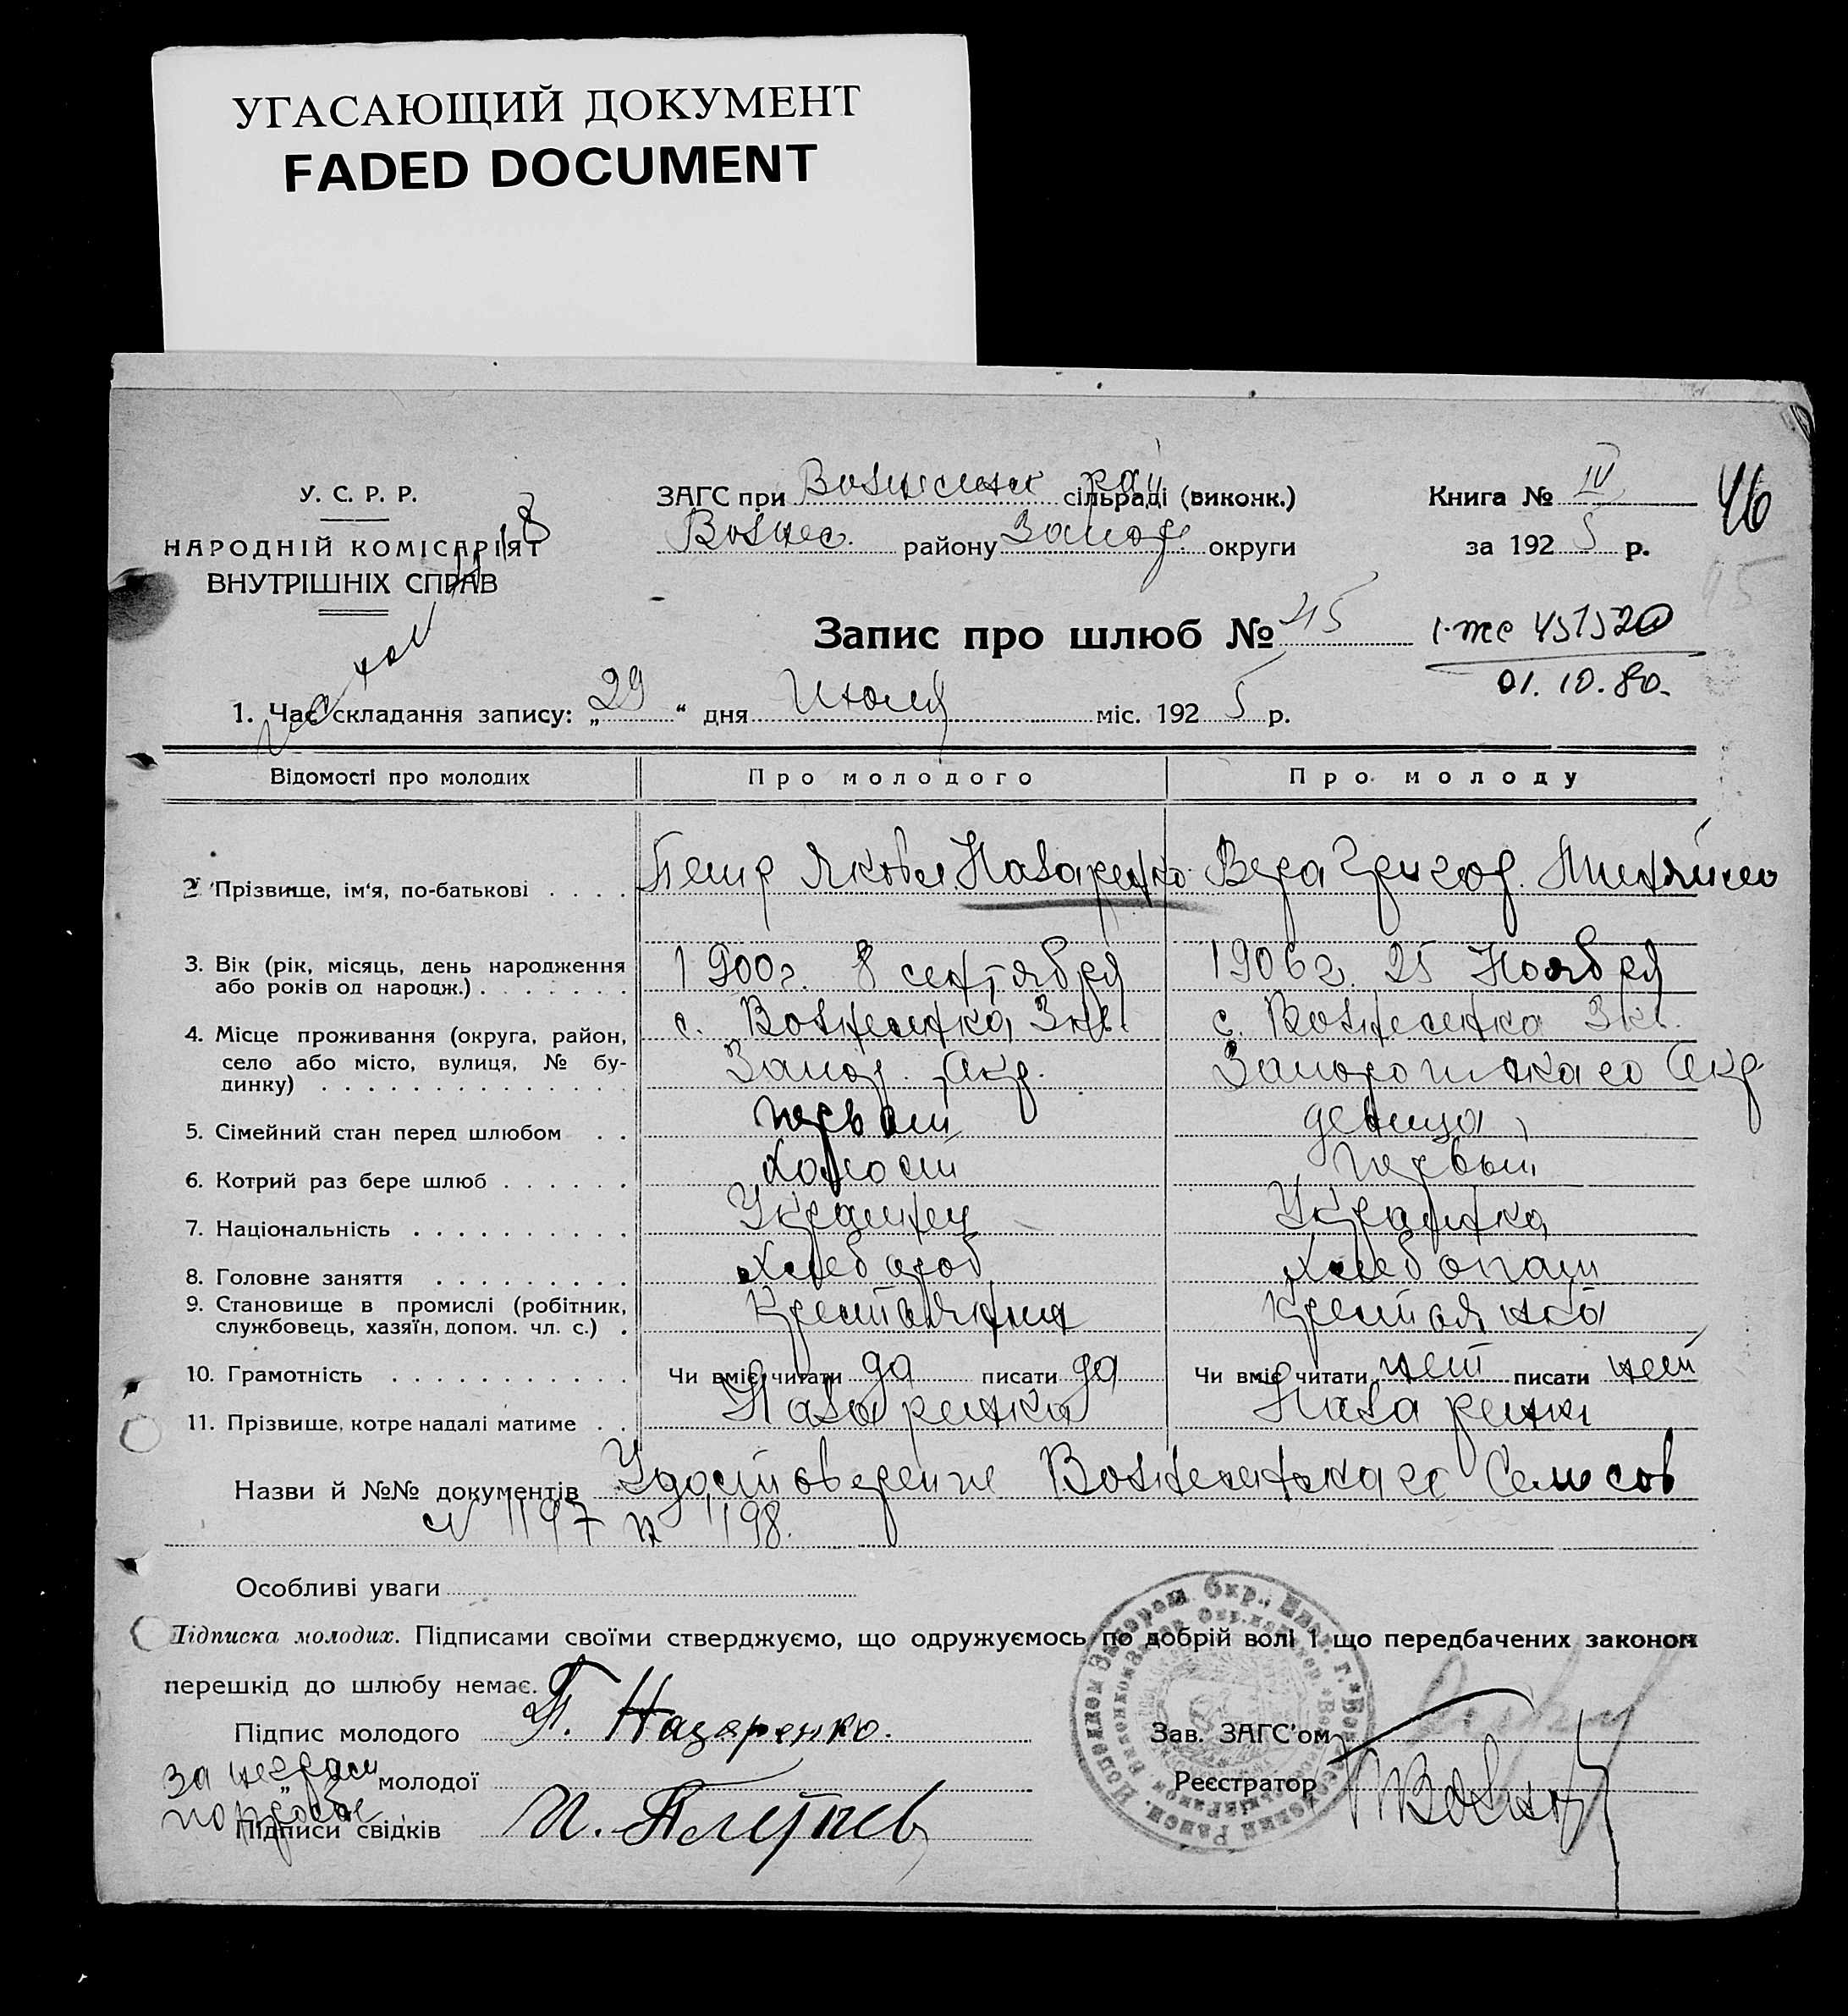 УГАСАЮЩИЙ ДОКУМЕНТ
FADED DOCUMENT
У. С. Р. Р.
НАРОДНІЙ КОМІСАРІЯТ
ВНУТРІШНІХ СПРАВ
ЗАГС при Вознесенск рай сільраді (виконк.)
Вознес. району Запор. округи
Книга № IV
за 1925 р.
46
Запис про шлюб № 45
45
01.10.80.
1. Час складання запису: „29“ дня Июля міс. 1925 р.
Відомості про молодих
Про молодого
Про молоду
2. Прізвище, ім'я, по-батькові . . . . Петр Яковл. Назаренко Вера Григор.
3. Вік (рік, місяць, день народження
або років од народж.) . . . . . . . 1900г. 8 сентября 1906г. 25 Ноября
4. Місце проживання (округа, район,
село або місто, вулиця, № бу-
динку) . . . . . . . . . . . . . .
с. Вознесенка с. Вознесенка
Запор. Окр. Запорожскаго Окр
5. Сімейний стан перед шлюбом . . первый девица
6. Котрий раз бере шлюб . . . . . . Холост первый
7. Національність . . . . . . . . . . Украинец Украинка
8. Головне заняття . . . . . . . . . Хлебороб Хлебопаш
9. Становище в промислі (робітник,
службовець, хазяїн, допом. чл. с.) . Крестьянин Крестьянка
10. Грамотність . . . . . . . . . . . Чи вміє читати да писати да Чи вміє читати нет писати нет
11. Прізвище, котре надалі матиме . . Назаренко Назаренко
Назви й №№ документів Удостоверение Вознесенскаго Сельсов
№ 1197 и 1198.
Особливі уваги
Підписка молодих. Підписами своїми стверджуємо, що одружуємось по добрій волі і що передбачених законом
перешкід до шлюбу немає.
Підпис молодого П. Назаренко.
Зав. ЗАГС'ом
за неграм „ молодої
Реєстратор
по просьбе
Підписи свідків